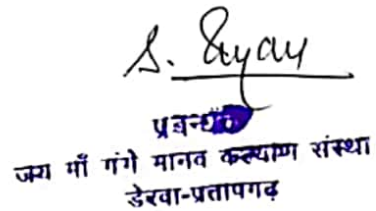 प्रबन्धक
जय माँ गंगे मानव कल्याण संस्था
डेरवा-प्रतापगढ़